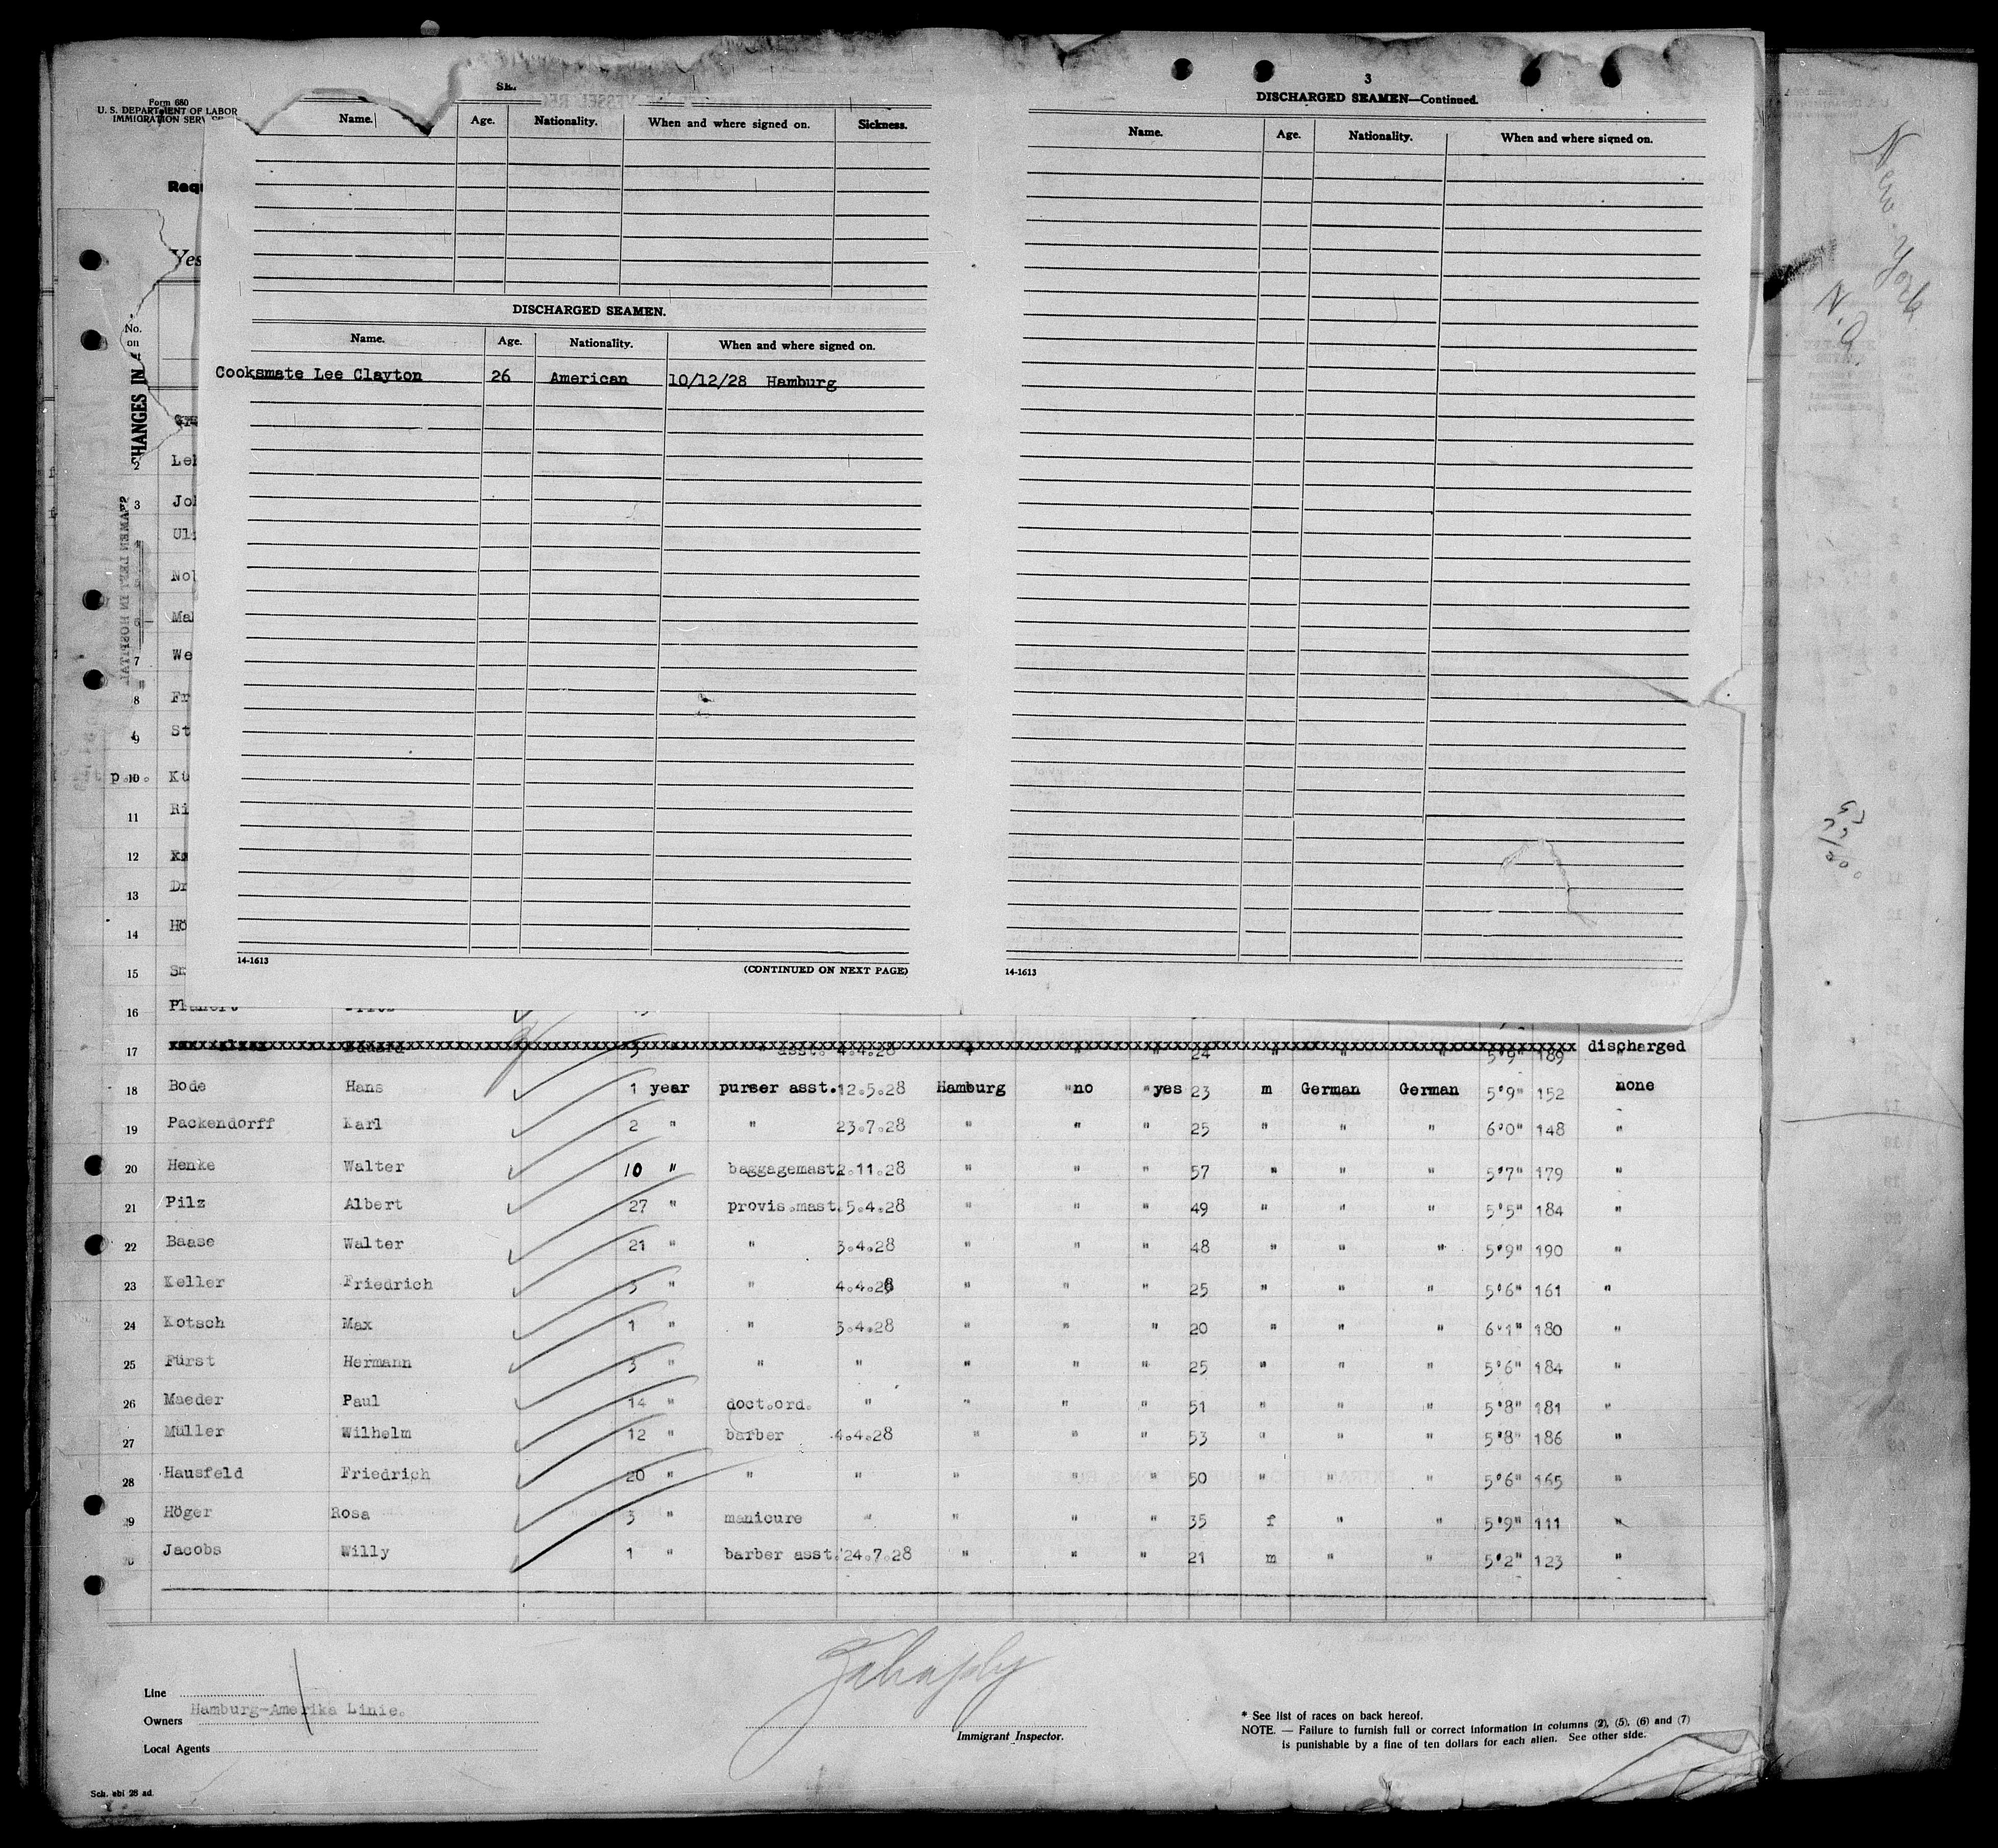 Form 680
U. S. DEPARTMENT OF LABOR
IMMIGRATION
Name. Age. Nationality. When and where signed on. Sickness.
DISCHARGED SEAMEN.
Name. Age. Nationality. When and where signed on.
Cooksmate Lee Clayton 26 American 10/12/28 Hamburg
14-1613
(CONTINUED ON NEXT PAGE)
3
DISCHARGED SEAMEN—Continued.
Name. Age. Nationality. When and where signed on.
14-1613
New York
N.
No.
on
CHANGES IN
SEAMEN LEFT IN HOSPITAL
2 Leh
3 Joh
Nol
7 We
8 Fr
9 St
10 Kü
11 Ri
12
13 Dr
14 Hö
15
16
17 Eduard 3 " " asst. 4.4.28 " " " 24 " " " 5'9" 189 discharged
18 Bode Hans 1 year purser asst. 12.5.28 Hamburg "no "yes 23 m German German 5'9" 152 none
19 Packendorff Karl 2 " " 23.7.28 " " " 25 " " " 6'0" 148 "
20 Henke Walter 10 " baggagemast. 2.11.28 " " " 57 " " " 5'7" 179 "
21 Pilz Albert 27 " provis.mast. 5.4.28 " " " 49 " " " 5'5" 184 "
22 Baase Walter 21 " " 3.4.28 " " " 48 " " " 5'9" 190 "
23 Keller Friedrich 3 " " 4.4.28 " " " 25 " " " 5'6" 161 "
24 Kotsch Max 1 " " 3.4.28 " " " 20 " " " 6'1" 180 "
25 Fürst Hermann 3 " " " " " " 25 " " " 5'6" 184 "
26 Maeder Paul 14 " doct.ord. " " " " 51 " " " 5'8" 181 "
27 Müller Wilhelm 12 " barber 4.4.28 " " " 53 " " " 5'8" 186 "
28 Hausfeld Friedrich 20 " " " " " " 50 " " " 5'6" 165 "
29 Höger Rosa 3 " manicure " " " " 35 f " " 5'9" 111 "
30 Jacobs Willy 1 " barber asst. 24.7.28 " " " 21 m " " 5'2" 123 "
Line
Hamburg-Amerika Linie.
Owners
Local Agents
Immigrant Inspector.
* See list of races on back hereof.
NOTE. — Failure to furnish full or correct information in columns (2), (5), (6) and (7)
is punishable by a fine of ten dollars for each alien. See other side.
Sch. abl 28 ad.